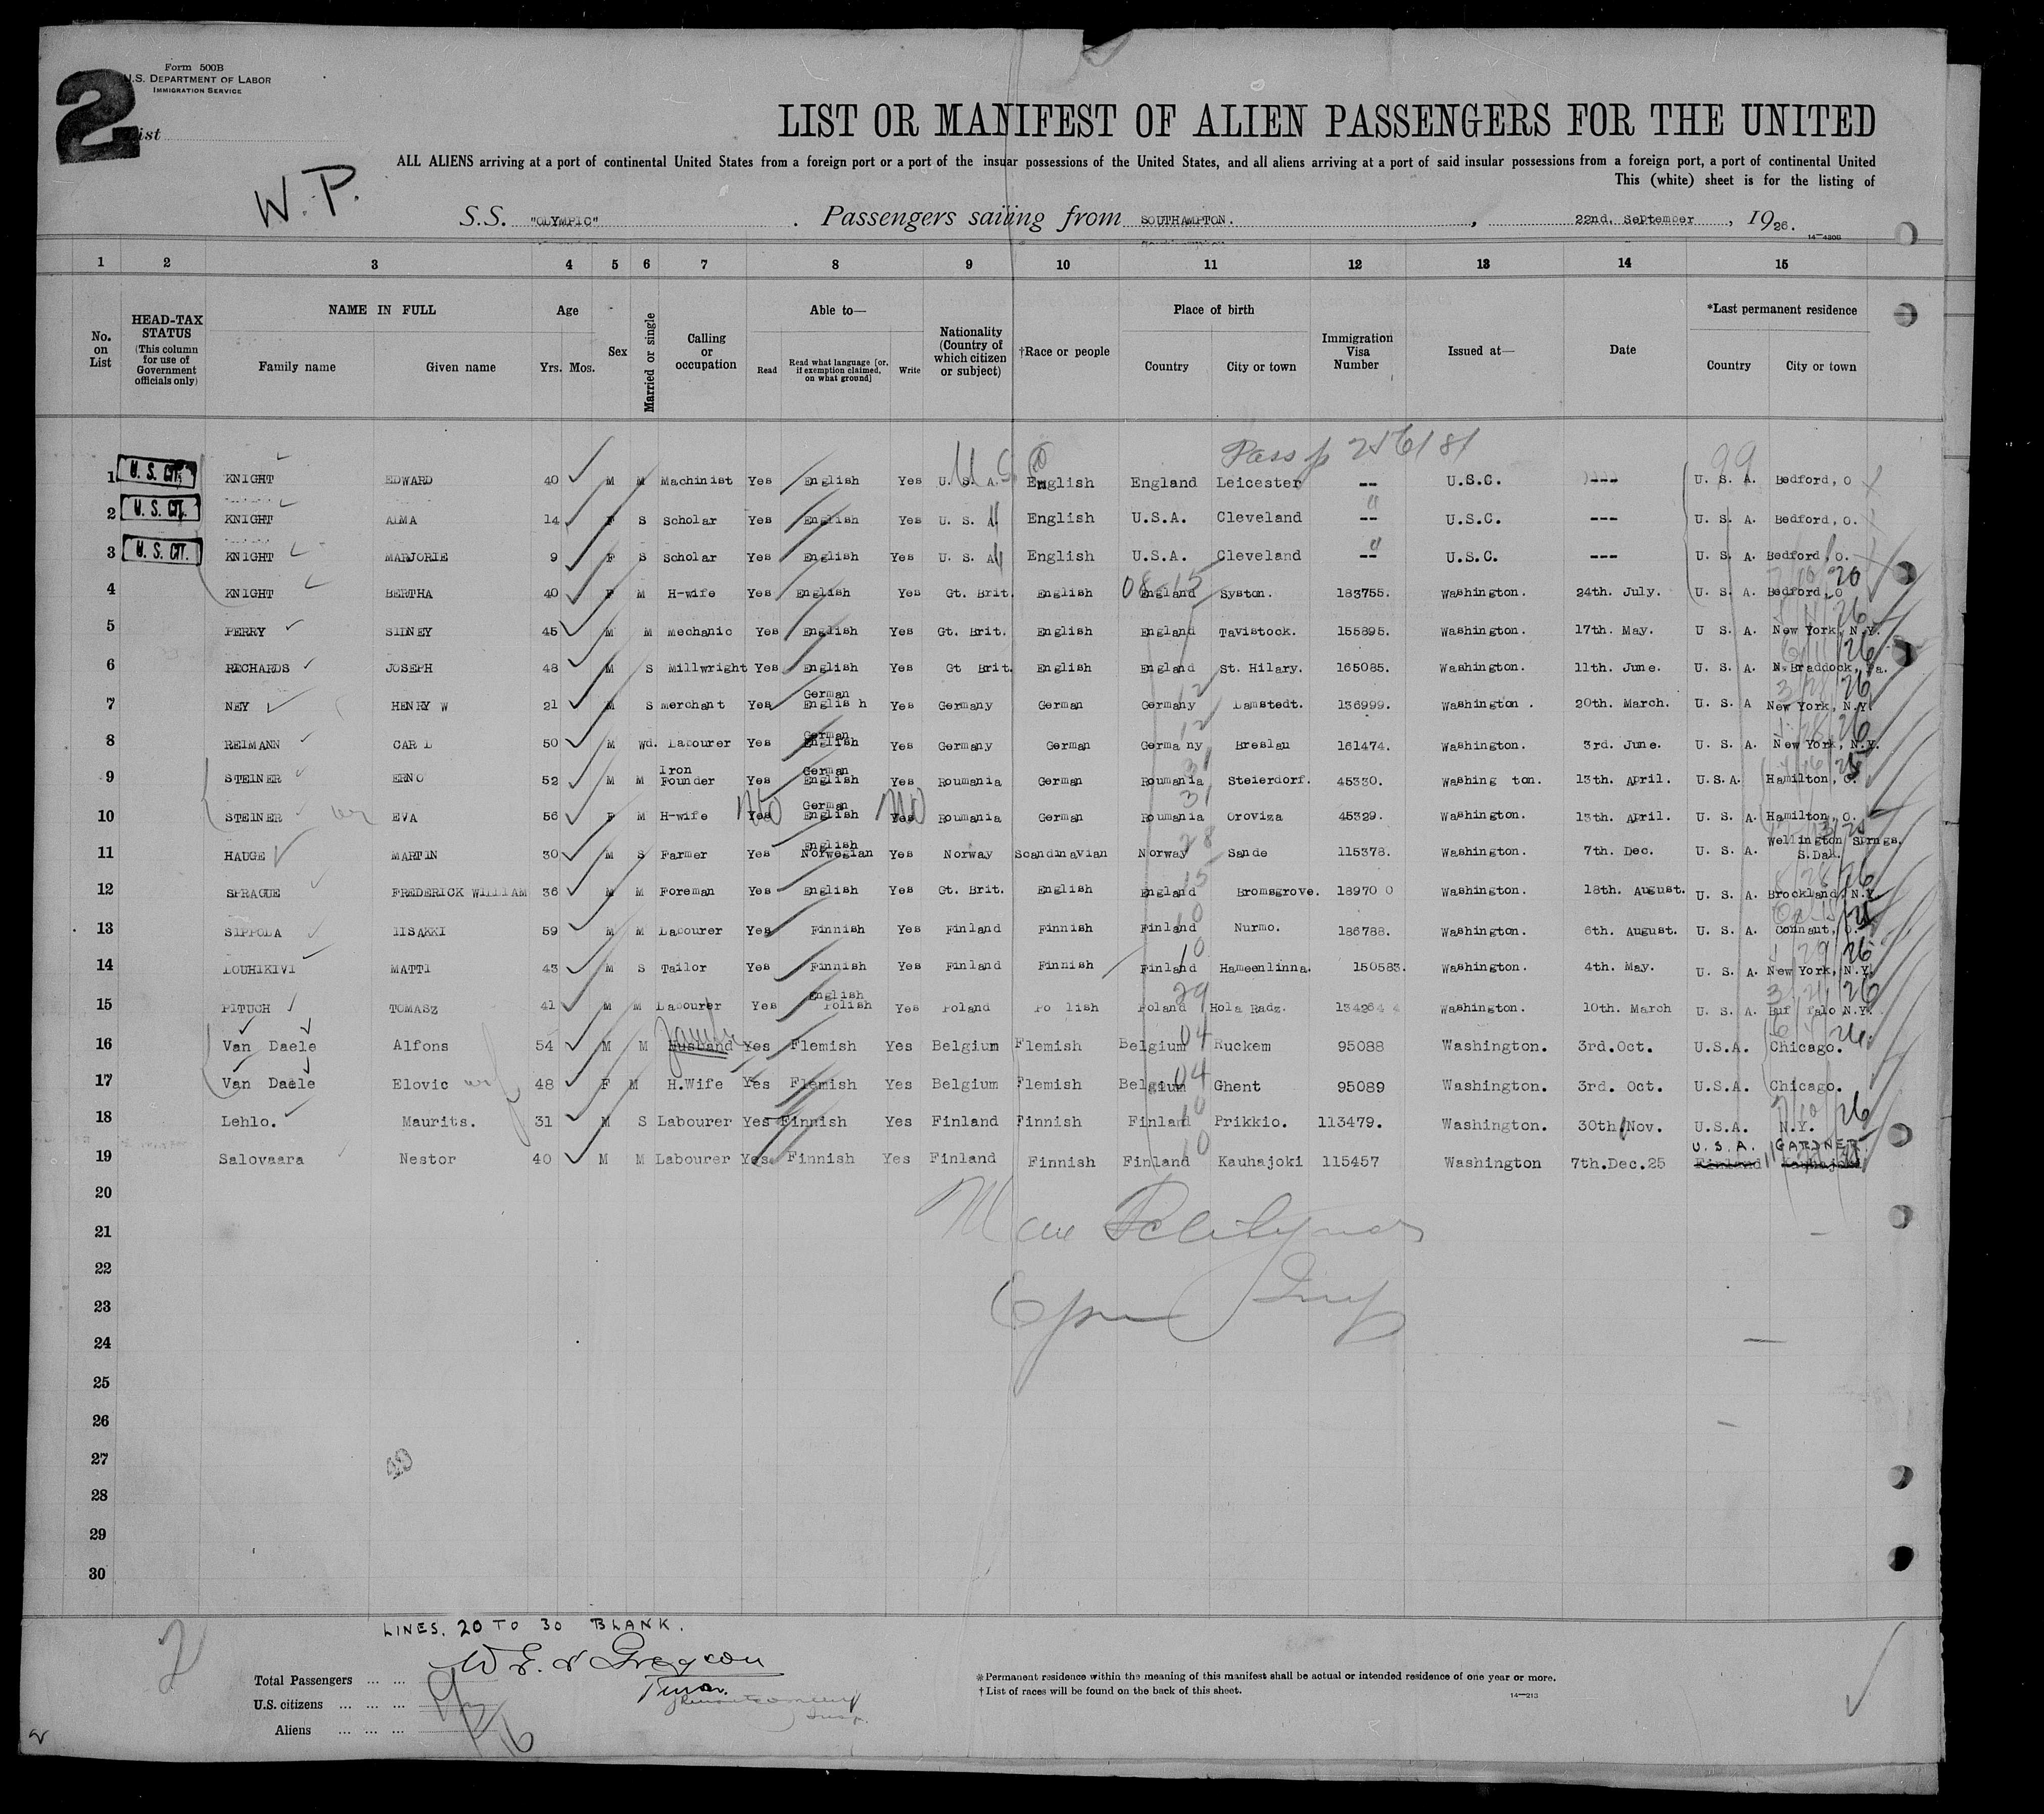 Form 500B
U.S. DEPARTMENT OF LABOR
IMMIGRATION SERVICE
2
ist
W. P.
LIST OR MANIFEST OF ALIEN PASSENGERS FOR THE UNITED
ALL ALIENS arriving at a port of continental United States from a foreign port or a port of the insular possessions of the United States, and all aliens arriving at a port of said insular possessions from a foreign port, a port of continental United
This (white) sheet is for the listing of
S.S. "OLYMPIC" . Passengers sailing from SOUTHAMPTON. , 22nd. September , 1926.
14—4208
1 2 3 4 5 6 7 8 9 10 11 12 13 14 15
No. on List
HEAD-TAX STATUS (This column for use of Government officials only)
NAME IN FULL Family name Given name
Age Yrs. Mos.
Sex
Married or single
Calling or occupation
Able to— Read Read what language [or, if exemption claimed, on what ground] Write
Nationality (Country of which citizen or subject)
†Race or people
Place of birth Country City or town
Immigration Visa Number
Issued at—
Date
*Last permanent residence Country City or town
Passp 256181
99
1 U. S. CIT. KNIGHT EDWARD 40 M M Machinist Yes English Yes U. S. A. English England Leicester -- U.S.C. --- U. S. A. Bedford, O
2 U. S. CIT. KNIGHT ALMA 14 F S Scholar Yes English Yes U. S. A. English U.S.A. Cleveland -- U.S.C. --- U. S. A. Bedford, O.
3 U. S. CIT. KNIGHT MARJORIE 9 F S Scholar Yes English Yes U. S. A. English U.S.A. Cleveland -- U.S.C. --- U. S. A. Bedford, O.
4 KNIGHT BERTHA 40 F M H-wife Yes English Yes Gt. Brit. English 08-15 England Syston. 183755. Washington. 24th. July. U. S. A. Bedford, O
5 PERRY SIDNEY 45 M M Mechanic Yes English Yes Gt. Brit. English England Tavistock. 155895. Washington. 17th. May. U S. A. New York, N.Y.
6 RICHARDS JOSEPH 48 M S Millwright Yes English Yes Gt Brit. English England St. Hilary. 165085. Washington. 11th. June. U. S. A. N. Braddock, Pa.
7 NEY HENRY W 21 M S Merchant Yes German English Yes Germany German Germany 12 Lamstedt. 136999. Washington . 20th. March. U. S. A New York, N.Y.
8 REIMANN CARL 50 M Wd. Labourer Yes German English Yes Germany German Germany 12 Breslau 161474. Washington. 3rd. June. U. S. A. New York, N.Y.
9 STEINER ERNO 52 M M Iron Founder Yes German English Yes Roumania German Roumania 31 Steierdorf. 45330. Washing ton. 13th. April. U.S.A. Hamilton, O.
10 STEINER EVA 56 F M H-wife Yes No German English Yes No Roumania German Roumania 31 Oroviza 45329. Washington. 13th. April. U. S. A. Hamilton, O.
11 HAUGE MARTIN 30 M S Farmer Yes English Norwegian Yes Norway Scandinavian Norway 28 Sande 115378. Washington. 7th. Dec. U. S. A. Wellington Sprngs, S.Dak.
12 SPRAGUE FREDERICK WILLIAM 36 M M Foreman Yes English Yes Gt. Brit. English England 15 Bromsgrove. 18970 0 Washington. 18th. August. U. S. A. Brockland, N.Y.
13 SIPPOLA IISAKKI 59 M M Labourer Yes Finnish Yes Finland Finnish Finland 10 Nurmo. 186788. Washington. 6th. August. U. S. A. Connant, O.
14 LOUHIKIVI MATTI 43 M S Tailor Yes Finnish Yes Finland Finnish Finland 10 Hameenlinna. 150583. Washington. 4th. May. U. S. A. New York, N.Y.
15 PITUCH TOMASZ 41 M M Labourer Yes English Polish Yes Poland Po lish Poland 29 Hola Radz. 134264 Washington. 10th. March U. S. A. Buf falo N.Y.
16 Van Daele Alfons 54 M M Husband Yes Flemish Yes Belgium Flemish Belgium 04 Ruckem 95088 Washington. 3rd.Oct. U.S.A. Chicago.
17 Van Daele Elovic wif 48 F M H.Wife Yes Flemish Yes Belgium Flemish Belgium 04 Ghent 95089 Washington. 3rd. Oct. U.S.A. Chicago.
18 Lehlo. Maurits. 31 M S Labourer Yes Finnish Yes Finland Finnish Finland 10 Prikkio. 113479. Washington. 30th Nov. U.S.A. N.Y.
19 Salovaara Nestor 40 M M Labourer Yes Finnish Yes Finland Finnish Finland 10 Kauhajoki 115457 Washington 7th.Dec.25 U.S.A. GARDNER Finland Kauhajoki
20
21
22
23
24
25
26
27
28
29
30
LINES. 20 TO 30 BLANK.
2
Total Passengers ... ...
U.S. citizens ... ... ...
Aliens ... ... ...
*Permanent residence within the meaning of this manifest shall be actual or intended residence of one year or more.
†List of races will be found on the back of this sheet.
14—213